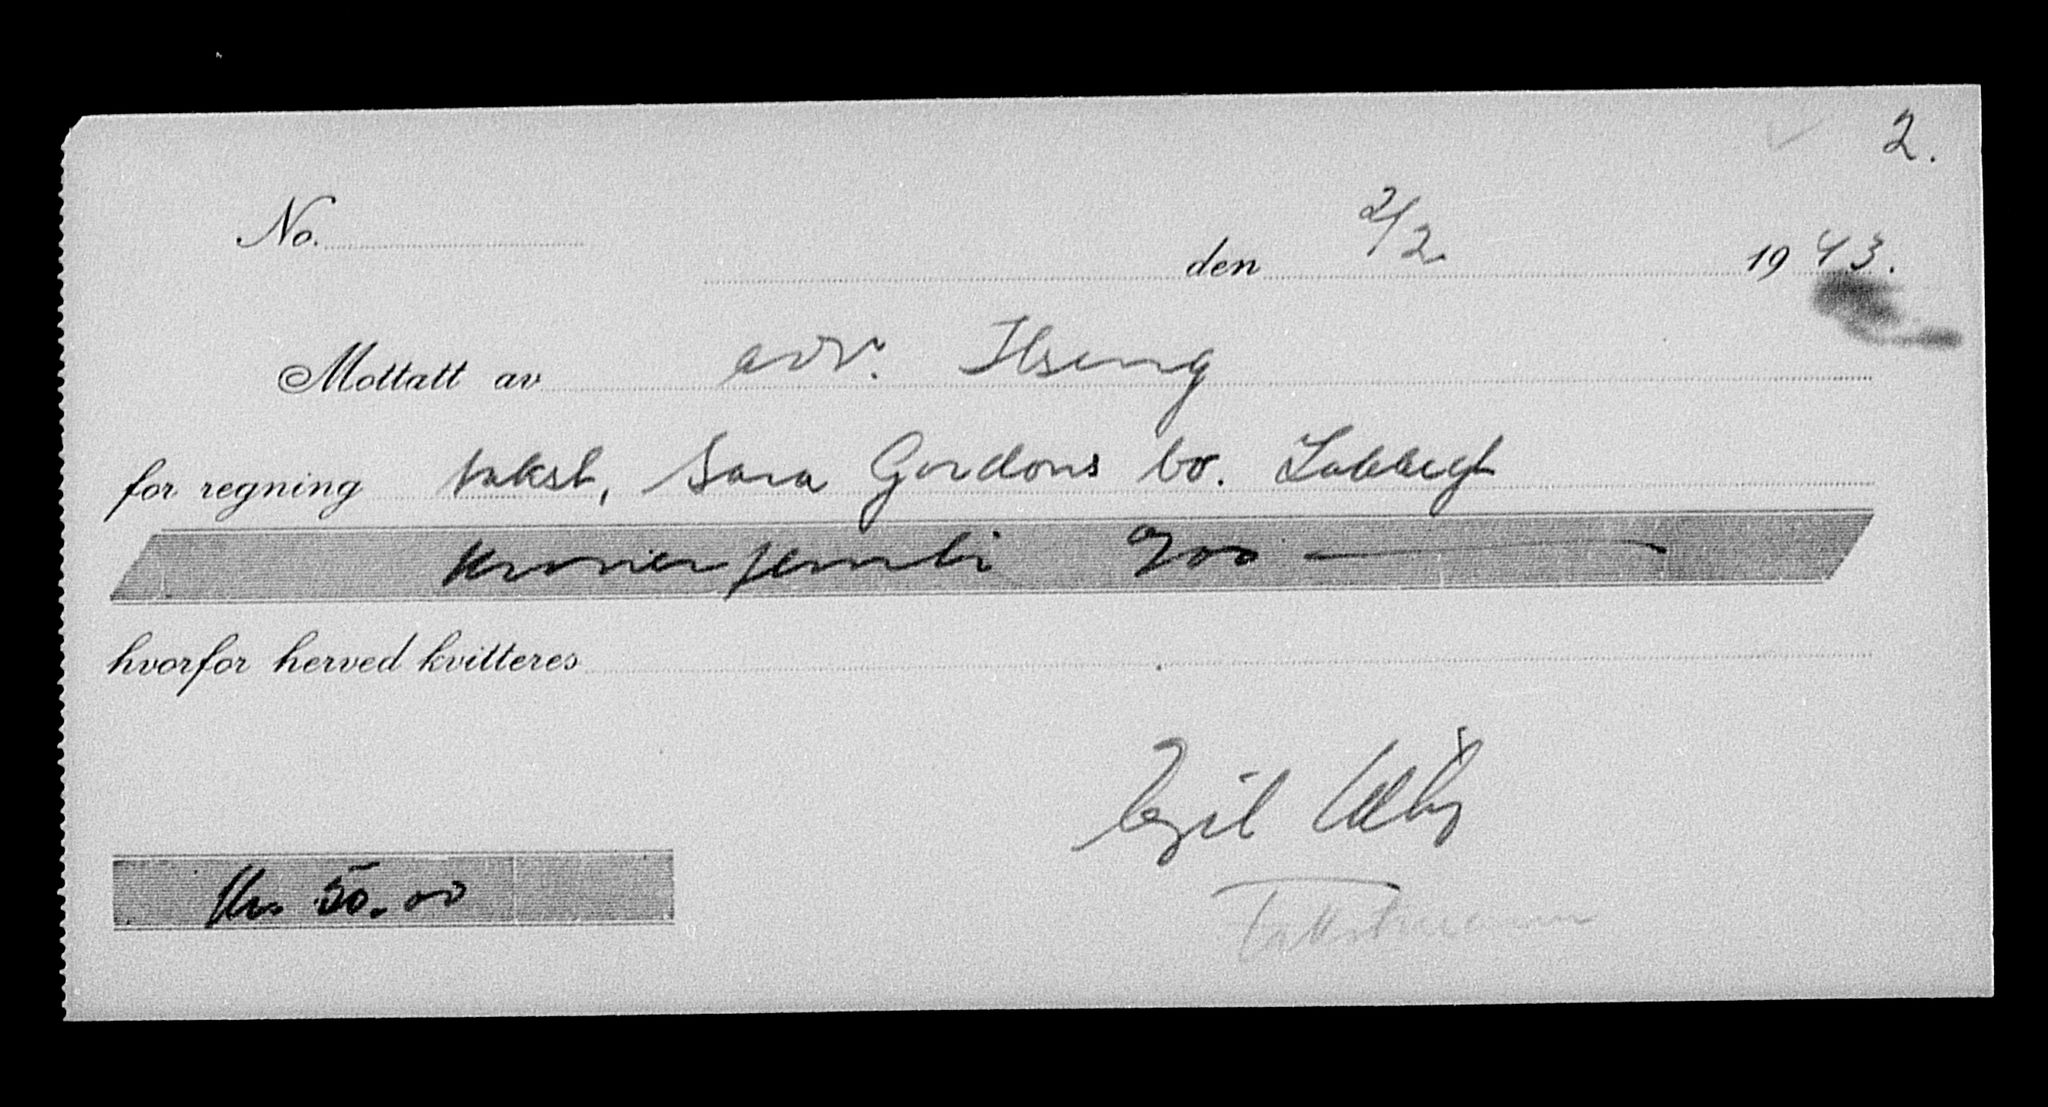 2.
No.
den 2/2 1943.
Mottatt av adv. Ilseng
for regning takst, Sara Gordons bo.
Kroner femti
hvorfor herved kvitteres
Egil
Kr. 50.00
Takstmann